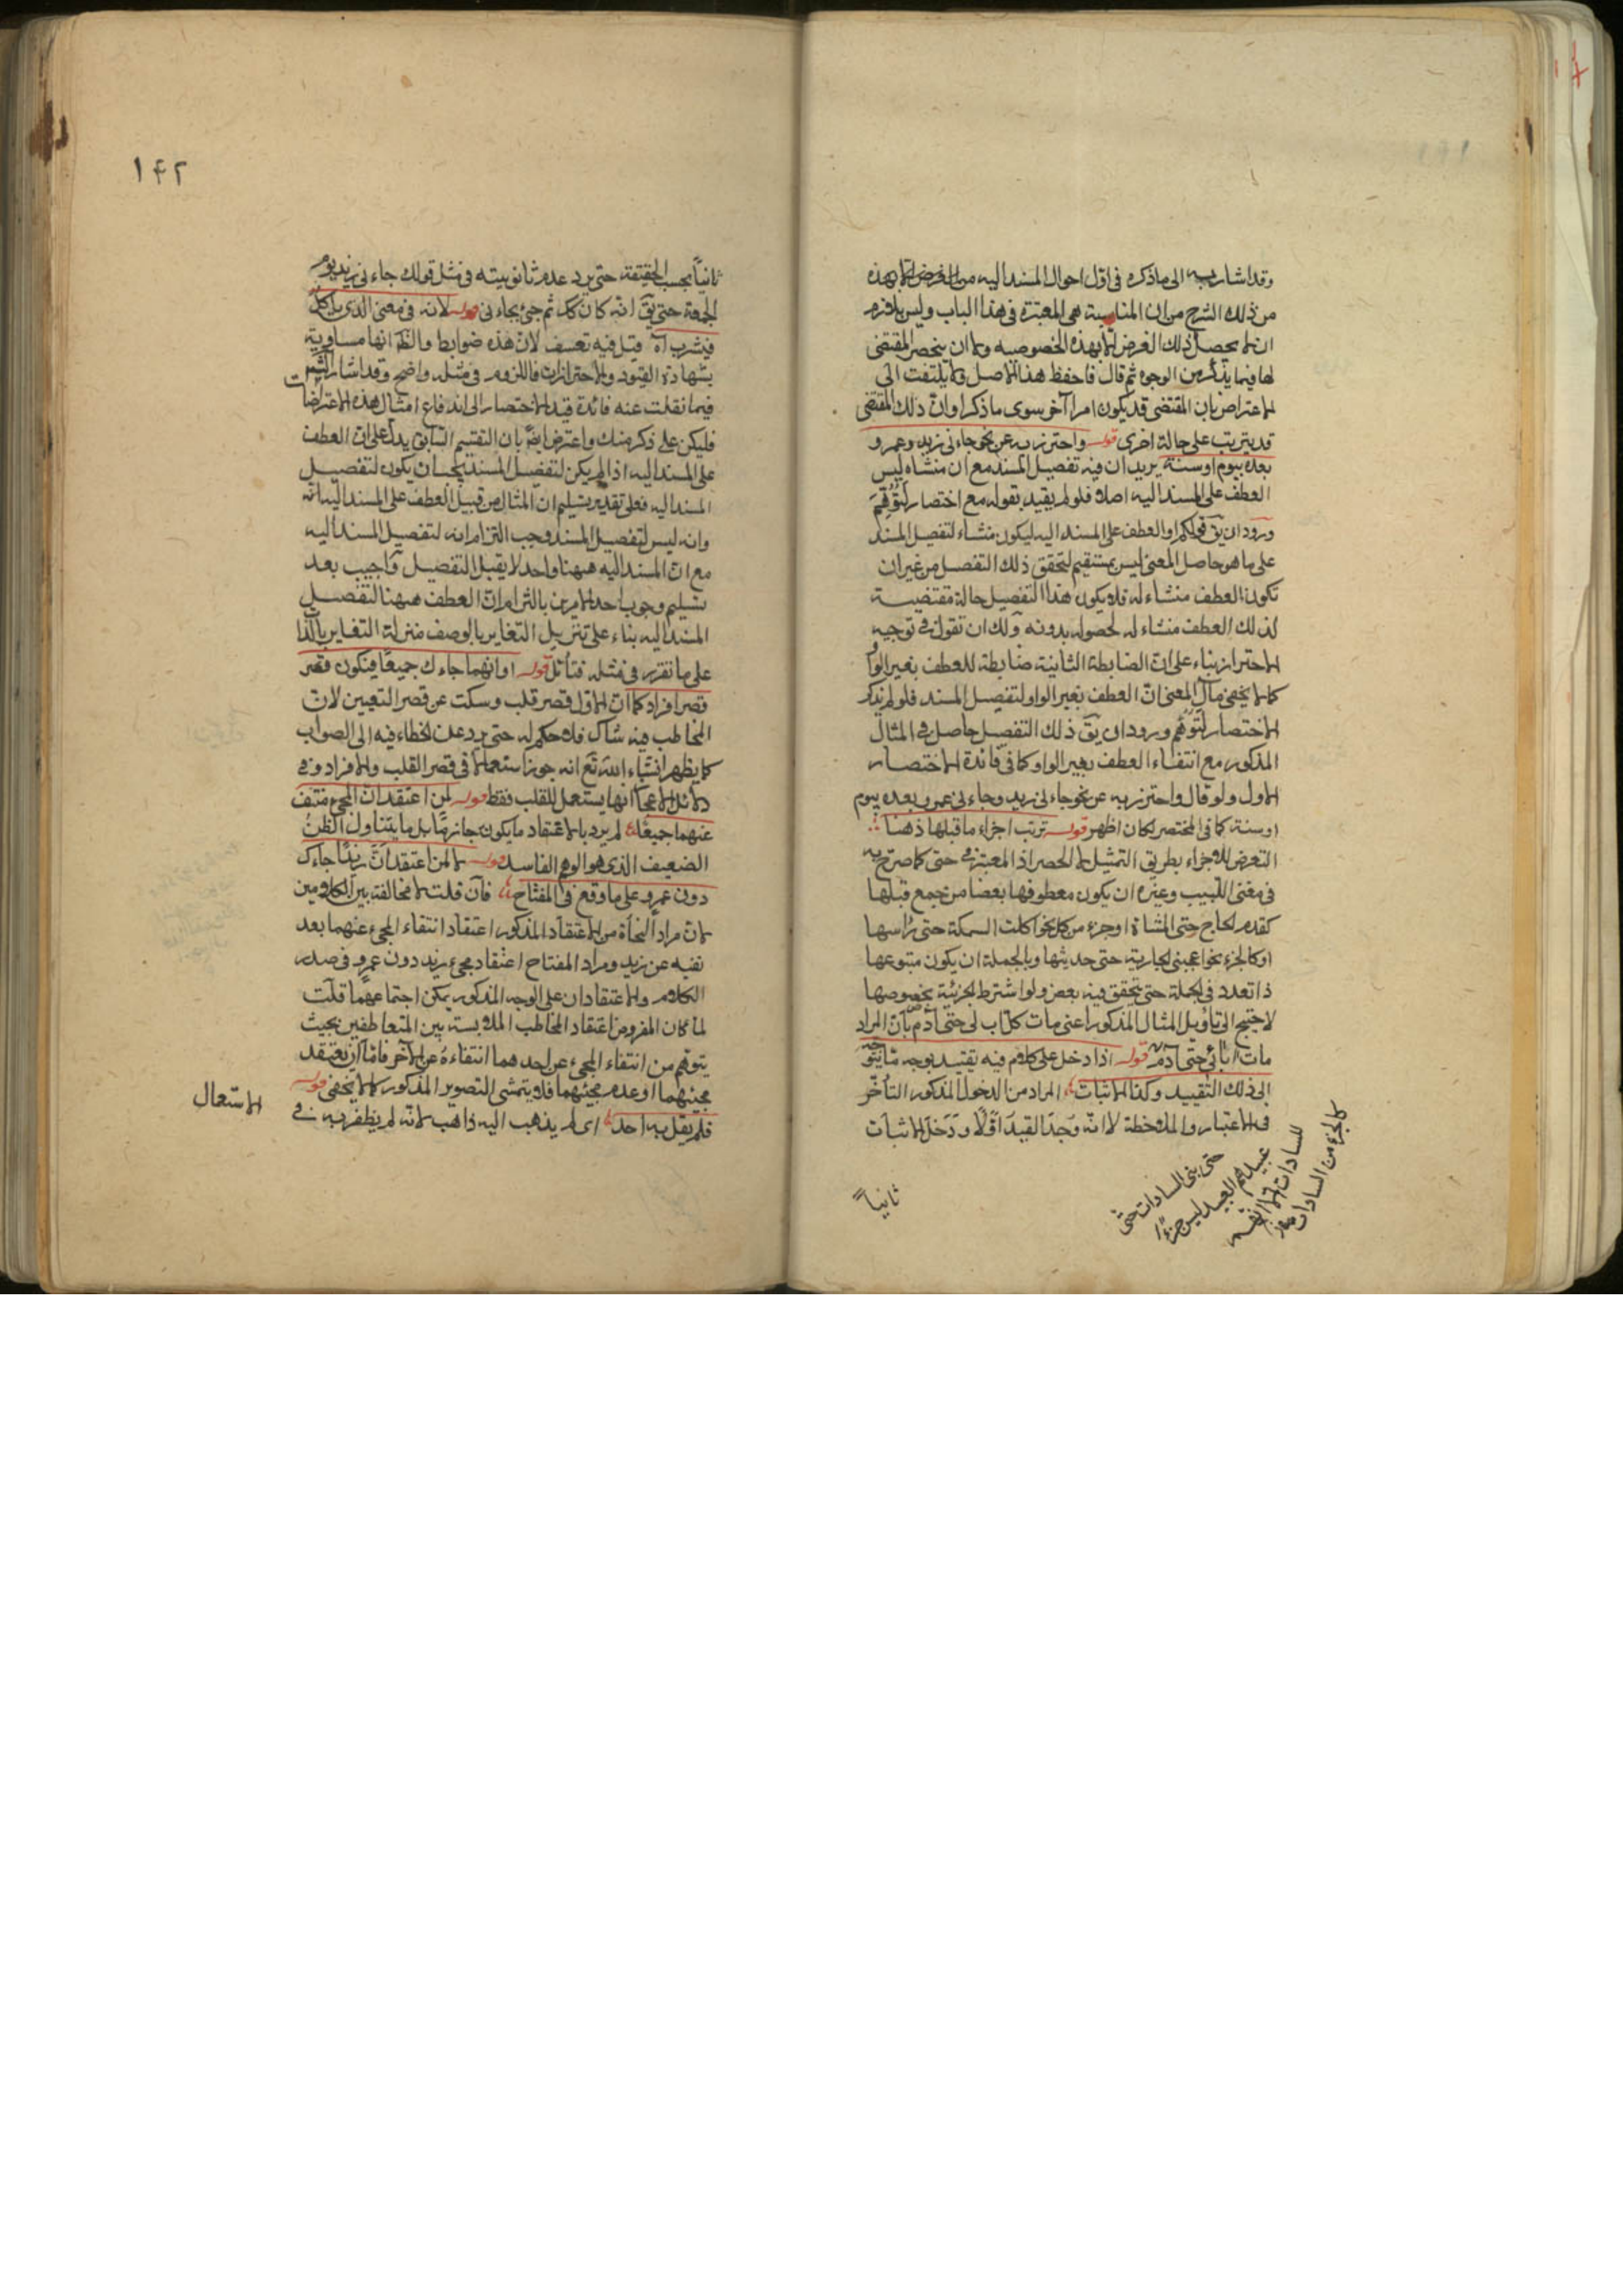 وقد اشار به الى ما ذكره فى اول احوال المسند اليه من الغرض الا بهذه
من ذلك الشرح من ان المناسبة هى المعتبرة فى هذا الباب وليس يلازم
ان لا يحصل ذلك الغرض الا بهذه الخصوصيه ولا ان ينحصر المقتضى
لها فيما يذكر من الوجوه ثم قال فاحفظ هذا الاصل ولا يلتفت الى
الاعتراض بان المقتضى قد يكون امرا آخر سوى ما ذكر او ان ذلك المقتضى
قد يترتب على حالة اخرى قوله واحترز به عن نحو جاءنى زيد وعمرو
بعده بيوم او سنة يريد ان فيه تفصيل المسند مع ان منشاه ليس
العطف على المسند اليه اصلا فلو لم يقيد بقوله مع اختصار لتوهم
ورود ان يق قولكم او العطف على المسند اليه ليكون منشاء لتفصيل المسند
على ما هو حاصل المعنى ليس بمستقيم لتحقق ذلك التفصل من غير ان
تكون العطف منشاء له فلا يكون هذا التفصيل حالة مقتضية
لذلك العطف منشاء له لحصوله بدونه ولك ان تقول فى توجيه
الاحتراز بناء على ان الضابطة الثانية ضابطة للعطف بغير الواو
كما لا يخفى مآل المعنى ان العطف بغير الواو لتفصيل المسند فلو لم يذكر
الاختصار لتوهم ورود ان يق ذلك التفصيل حاصل فى المثال
المذكور مع انتفاء العطف بغير الواو كما فى فائدة الاختصار
الاول ولو قال واحترز به عن نحو جاءنى زيد وجاءنى عمرو بعده بيوم
او سنة كما فى المختصر لكان اظهر قوله ترتب اجزاء ما قبلها ذهنا
التعرض للاجزاء بطريق التمثيل لا الحصر اذ المعتبر فى حتى كما صرح به
فى مغنى اللبيب وغيره ان يكون معطوفها بعضا من جمع قبلها
كقدم الحاج حتى المشاة او جزء من كل نحو اكلت السمكة حتى راسها
او كالجزء نحو اعجبنى الجارية حتى حديثها وبالجملة ان يكون متبوعها
ذا تعدد فى الجملة حتى يتحقق فيه بعض ولو اشترط الجزئية بخصوصها
لاحتيج الى تاويل المثال المذكور اعنى مات كل اب لى حتى آدم بان المراد
مات آبائى حتى آدم قوله اذا دخل على كلام فيه تقييد بوجه ما يتوجه
الى ذلك التقييد وكذا الاثبات المراد من الدخول المذكور التأخر
فى الاعتبار والملاحظة لا انه وجد القيد اولا ودخل الاثبات
ثانياً
حتى بنى السادات حتى
عبيدهم العبيد ليس جزءا
للسادات
كالجزء من السادات
١٤٢
ثانياً بحسب الحقيقة حتى يرد عدم ثانويته فى مثل قولك جاءنى زيد يوم
الجمعة حتى يق انه كان كك ثم جئ بجاءنى قوله لانه فى معنى الذى يأكل
فيشرب اه قيل فيه تعسف لان هذه ضوابط والظ انها مساوية
بشهادة القيود والاحترازات فاللزوم فى مثله واضح وقد اشار الشم
فيما نقلت عنه فائدة قيد الاختصار الى اندفاع امثال هذه الاعتراضات
فليكن على ذكر منك واعترض ايضا بان التقسيم السابق يدل على ان العطف
على المسند اليه اذا لم يكن لتفصيل المسند يجب ان يكون لتفصيل
المسند اليه فعلى تقدير تسليم ان المثال من قبيل العطف على المسند اليه انه
وانه ليس لتفصيل المسند وجب التزام انه لتفصيل المسند اليه
مع ان المسند اليه ههنا واحد لا يقبل التفصيل واجيب بعد
تسليم وجوب احد الامرين بالتزام ان العطف ههنا لتفصيل
المسند اليه بناء على تنزيل التغاير بالوصف منزلة التغاير بالذا
على ما تقرر فى مثله فتأمل قوله او انهما جاءك جميعا فيكون قصر
قصر افراد كما ان الاول قصر قلب وسكت عن قصر التعيين لان
المخاطب فيه شاك فلا حكم له حتى يرد عن الخطاء فيه الى الصواب
كما يظهر انشاء الله تع انه جوز استعمال لا فى قصر القلب والافراد وفى
دلائل الاعجاز انها يستعمل للقلب فقط قوله لمن اعتقد ان المجئ منتف
عنهما جميعا لم يرد بالاعتقاد ما يكون جازما بل ما يتناول الظن
الضعيف الذى هو الوهم الفاسد قوله لا لمن اعتقد ان زيدا جاءك
دون عمرو على ما وقع فى المفتاح فان قلت لا مخالفة بين الكلامين
لان مراد النحاة من الاعتقاد المذكور اعتقاد انتفاء المجئ عنهما بعد
نفيه عن زيد ومراد المفتاح اعتقاد مجئ زيد دون عمرو فى صدر
الكلام والاعتقادان على الوجه المذكور يمكن اجتماعهما قلت
لما كان المفروض اعتقاد المخاطب الملابسة بين المتعاطفين بحيث
يتوهم من انتفاء المجئ عن احدهما انتفاءه عن الآخر فاما ان يعتقد
مجيئهما او عدم مجيئهما فلا يتمشى التصوير المذكور كما لا يخفى قوله
فلم يقل به احد اى لم يذهب اليه ذاهب لانه لم يظفر به فى
الاستعمال